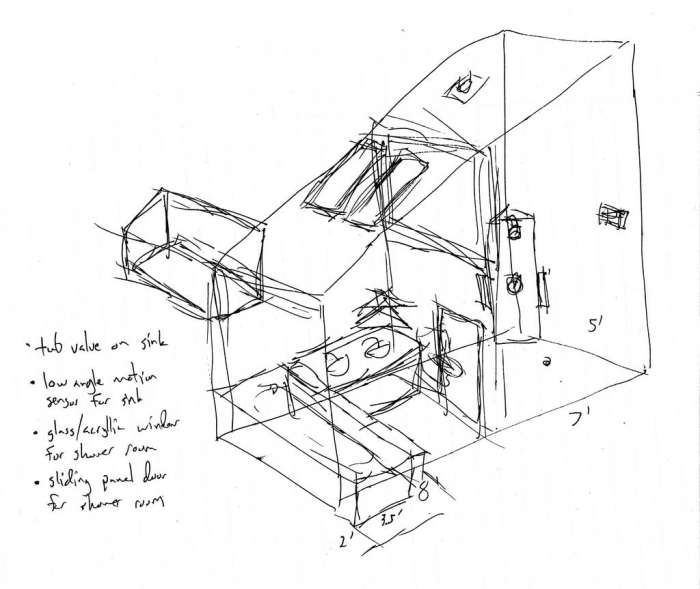 • tub value on sink
• low angle motion
sensor for sink
• glass/acryllic window
for shower room
• sliding panel door
for shower room
5'
7'
8'
3.5'
2'